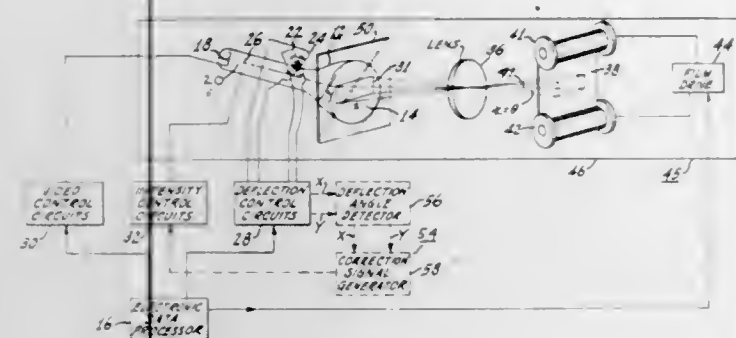 22
24
12
50
18
26
20
31
14
LENS
36
47
41
38
42
44
FILM
DRIVE
46
45
VIDEO
CONTROL
CIRCUITS
30
INTENSITY
CONTROL
CIRCUITS
32
DEFLECTION
CONTROL
CIRCUITS
28
X
Y
DEFLECTION
ANGLE
DETECTOR
56
X
Y
54
CORRECTION
SIGNAL
GENERATOR
58
ELECTRONIC
DATA
PROCESSOR
16